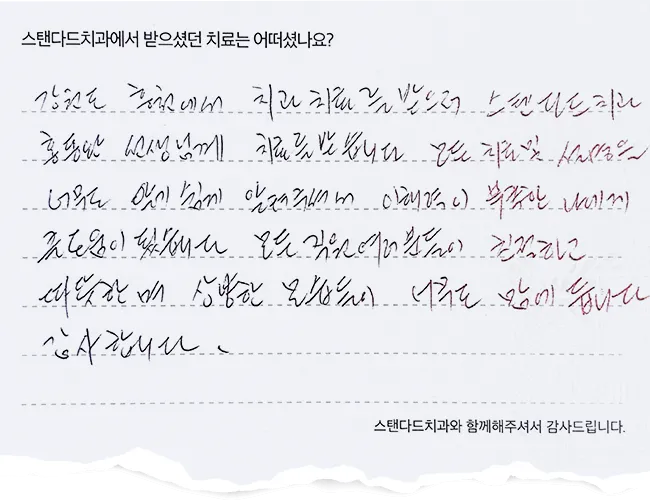 스탠다드치과에서 받으셨던 치료는 어떠셨나요?
강원도 홍천에서 치과 치료를 받으러 스텐다드치과
홍동완 선생님께 치료를 받습니다 모든 치료 및 설명을
너무도 알기쉽게 알려주셔서 이해력이 부족한 나에게
큰 도움이 됬습니다 모든 직원 여러분들이 친절하고
따뜻한 상냥한 모습들이 너무도 맘에 듭니다
감사합니다.
스탠다드치과와 함께해주셔서 감사드립니다.